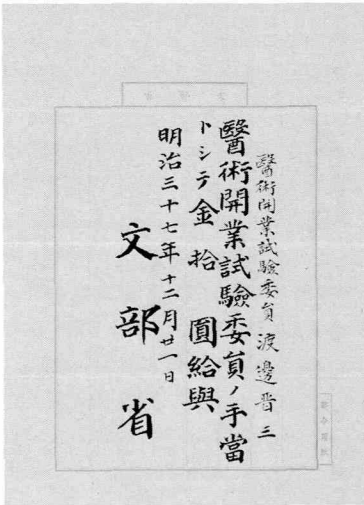 醫術開業試驗委員 渡邊晋三
醫術開業試驗委員ノ手當
トシテ金拾圓給與
明治三十七年十二月廿一日
文部省